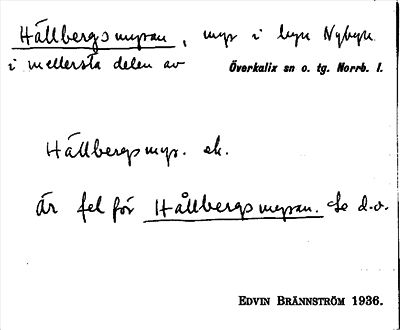 Hällbergsmyran, myr i byn Nybyn
i mellersta delen av Överkalix sn o. tg. Norrb. l.
Hällbergsmyr. ek.
är fel för Hållbergsmyran. Se d.o.
EDVIN BRÄNNSTRÖM 1936.